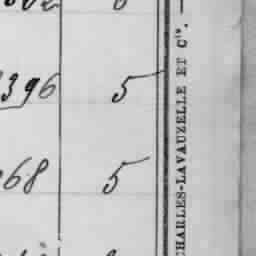 396 5
68 5
CHARLES-LAVAUZELLE ET Cie. —